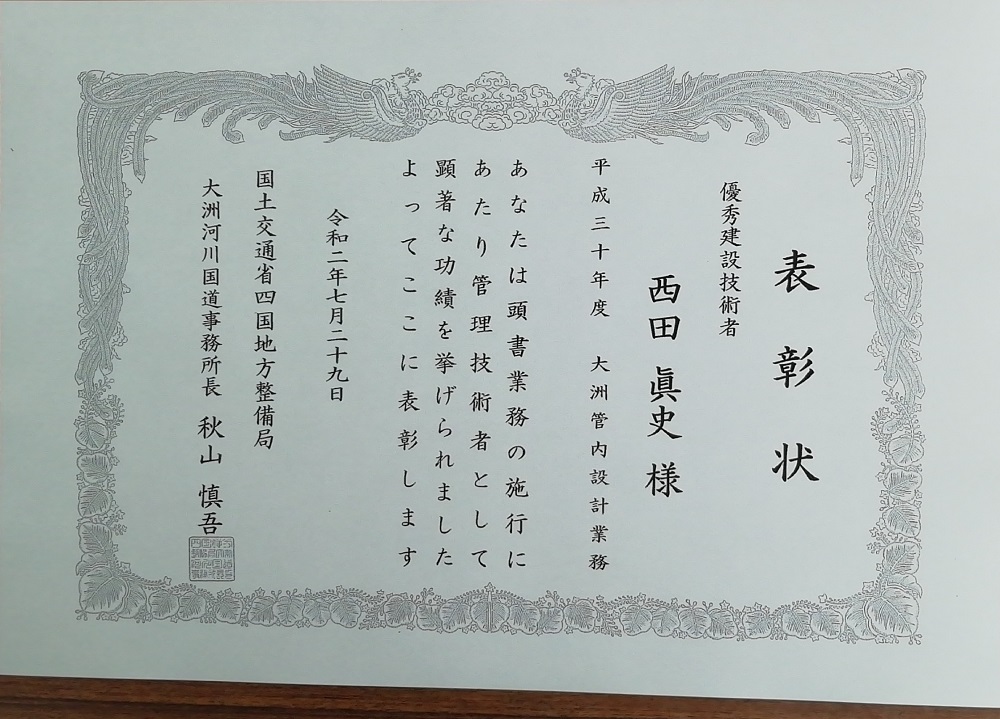 表彰状
優秀建設技術者
西田 眞史 様
平成三十年度 大洲管内設計業務
あなたは頭書業務の施行に
あたり管理技術者として
顕著な功績を挙げられました
よってここに表彰します
令和二年七月二十九日
国土交通省四国地方整備局
大洲河川国道事務所長 秋山 慎吾